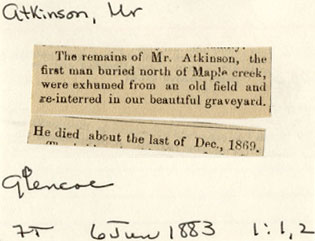 Atkinson, Mr
The remains of Mr. Atkinson, the
first man buried north of Maple creek,
were exhumed from an old field and
re-interred in our beautiful graveyard.
He died about the last of Dec., 1869.
Glencoe
7T 6 Jun 1883 1:1,2